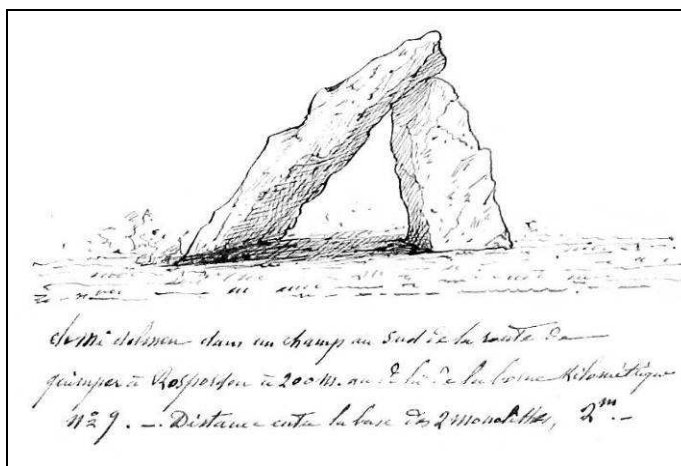 demi dolmen dans un champ au sud de la route de
quimper à Rosporden à 200 m. au delà de la borne kilométrique
N° 9. — Distance entre la base des 2 monolithes, 2m. —